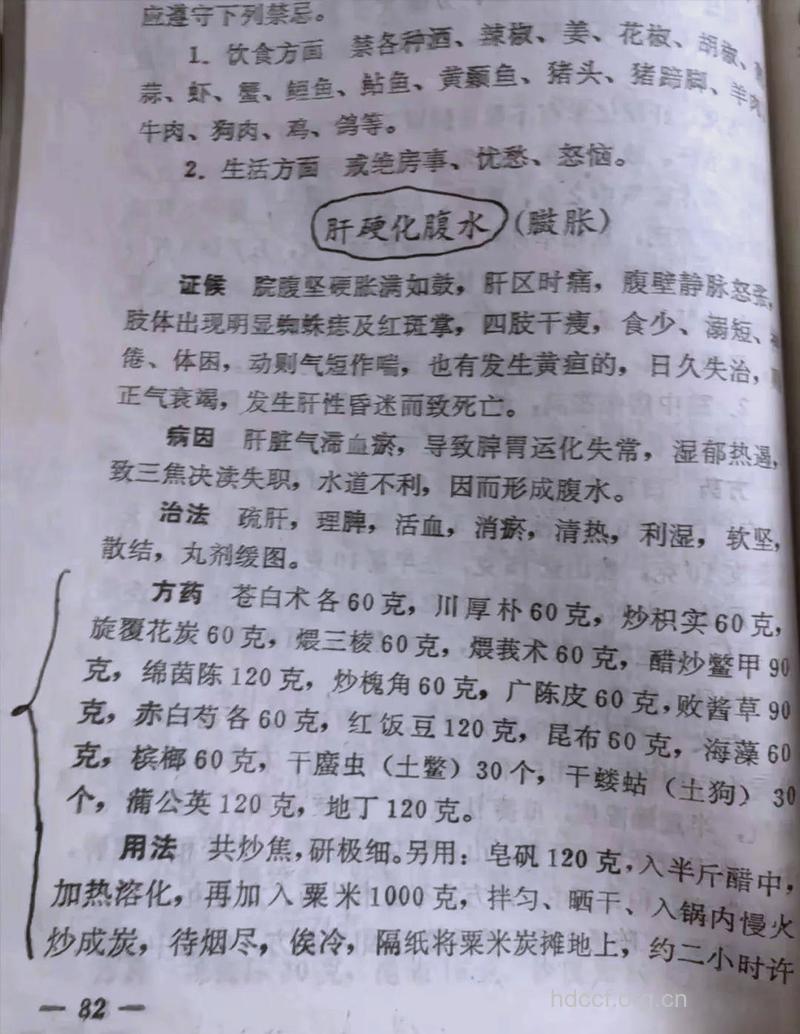 应遵守下列禁忌。
1. 饮食方面 禁各种酒、辣椒、姜、花椒、胡椒、
蒜、虾、蟹、鲤鱼、鲇鱼、黄颡鱼、猪头、猪蹄脚、羊肉、
牛肉、狗肉、鸡、鸽等。
2. 生活方面 戒绝房事、忧愁、怒恼。
肝硬化腹水(臌胀)
证候 脘腹坚硬胀满如鼓，肝区时痛，腹壁静脉怒张，
肢体出现明显蜘蛛痣及红斑掌，四肢干瘦，食少、溺短、
倦、体困，动则气短作喘，也有发生黄疸的，日久失治，
正气衰竭，发生肝性昏迷而致死亡。
病因 肝脏气滞血瘀，导致脾胃运化失常，湿郁热遏，
致三焦决渎失职，水道不利，因而形成腹水。
治法 疏肝，理脾，活血，消瘀，清热，利湿，软坚，
散结，丸剂缓图。
方药 苍白术各60克，川厚朴60克，炒枳实60克，
旋覆花炭60克，煨三棱60克，煨莪术60克，醋炒鳖甲90
克，绵茵陈120克，炒槐角60克，广陈皮60克，败酱草90
克，赤白芍各60克，红饭豆120克，昆布60克，海藻60
克，槟榔60克，干䗪虫（土鳖）30个，干蝼蛄（土狗）30
个，蒲公英120克，地丁120克。
用法 共炒焦，研极细。另用：皂矾120克，入半斤醋中，
加热溶化，再加入粟米1000克，拌匀、晒干、入锅内慢火
炒成炭，待烟尽，俟冷，隔纸将粟米炭摊地上，约二小时许
— 82 —
hdccf.org.cn